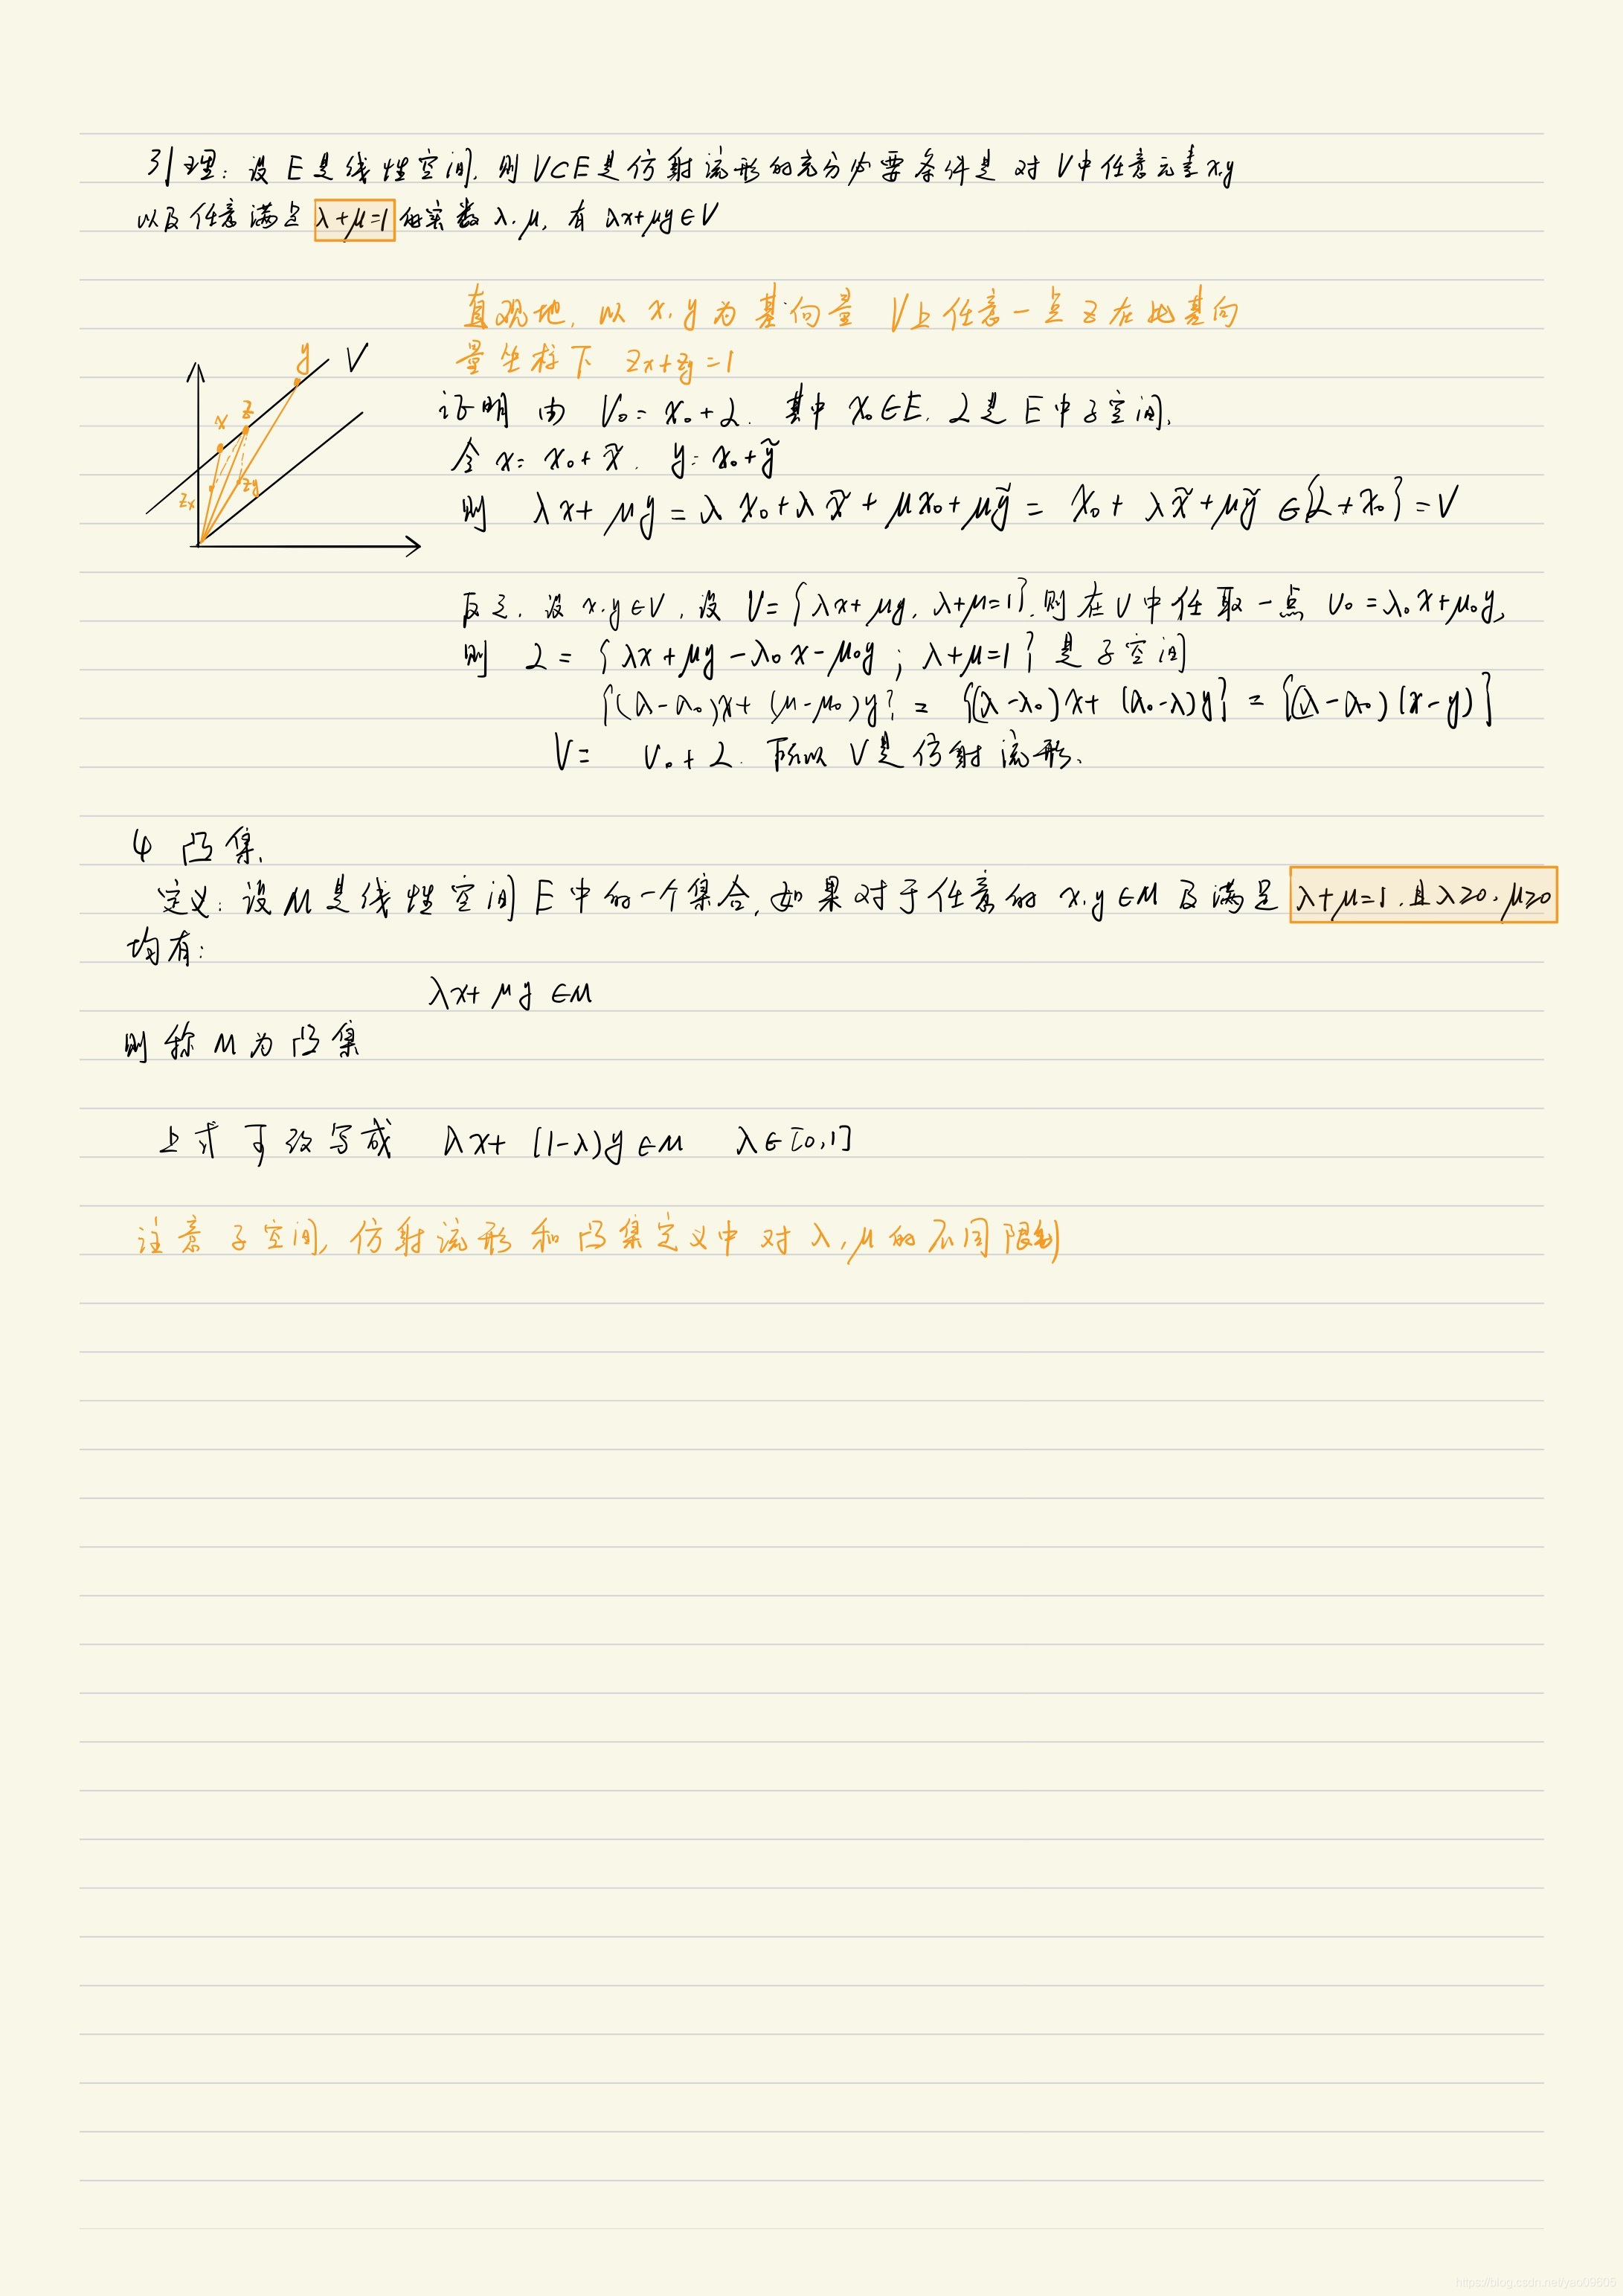 引理：设 E 是线性空间，则 V⊂E 是仿射流形的充分必要条件是 对 V中任意元素 x,y
以及任意满足 λ+μ=1 的实数 λ,μ，有 λx+μy∈V
直观地，以 x,y 为基向量 V上任意一点 z 在此基向
量坐标下 zx+zy=1
y V
x z
zx zy
证明 由 V₀=x₀+L. 其中 x₀∈E, L是 E中子空间，
令 x= x₀+x̃. y= x₀+ỹ
则 λx+μy=λx₀+λx̃+μx₀+μỹ= x₀+λx̃+μỹ ∈{L+x₀}=V
反之，设 x,y∈V，设 V={λx+μy, λ+μ=1}, 则在V中任取一点 v₀=λ₀x+μ₀y,
则 L= {λx+μy-λ₀x-μ₀y ; λ+μ=1} 是子空间
{(λ-λ₀)x+(μ-μ₀)y} = {(λ-λ₀)x+(λ₀-λ)y} = {(λ-λ₀)(x-y)}
V= v₀+L. 所以 V是仿射流形、
4 凸集、
定义：设 M 是线性空间 E 中的一个集合，如果对于任意的 x,y∈M 及满足 λ+μ=1.且λ≥0,μ≥0
均有：
λx+μy∈M
则称 M 为 凸集
上式可改写成 λx+(1-λ)y∈M λ∈[0,1]
注意 子空间，仿射流形 和 凸集定义中 对 λ,μ 的不同限制
https://blog.csdn.net/yao09605